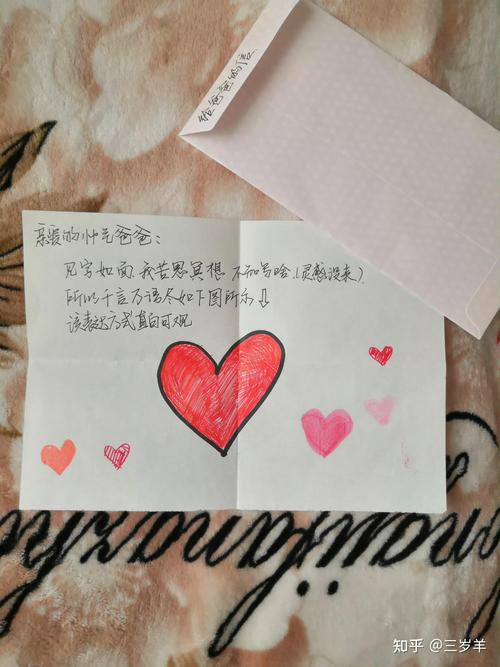 给爸爸的信
亲爱的帅气爸爸:
见字如面,我苦思冥想,不知写啥(灵感没来)
所以千言万语尽如下图所示↓
该表达方式直白可观
知乎 @三岁羊